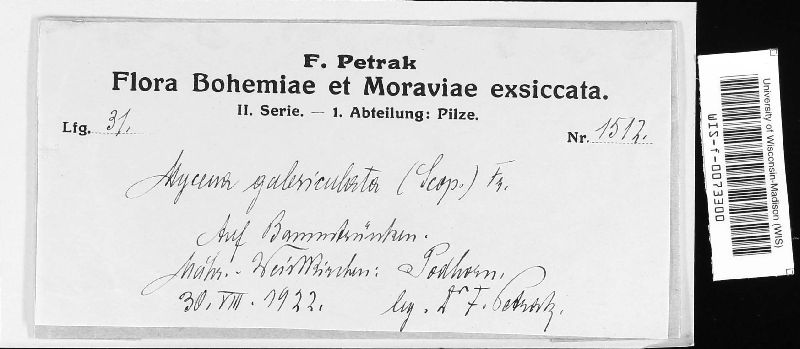 F. Petrak
Flora Bohemiae et Moraviae exsiccata.
II. Serie. — 1. Abteilung: Pilze.
Lfg. 31.
Nr. 1512.
Mycena galericulata (Scop.) Fr.
Auf Baumstrünken.
Mähr.-Weisskirchen: Podhorn.
30. VIII. 1922. leg. Dr F. Petrak.
University of Wisconsin-Madison (WIS)
WIS-f-0073300